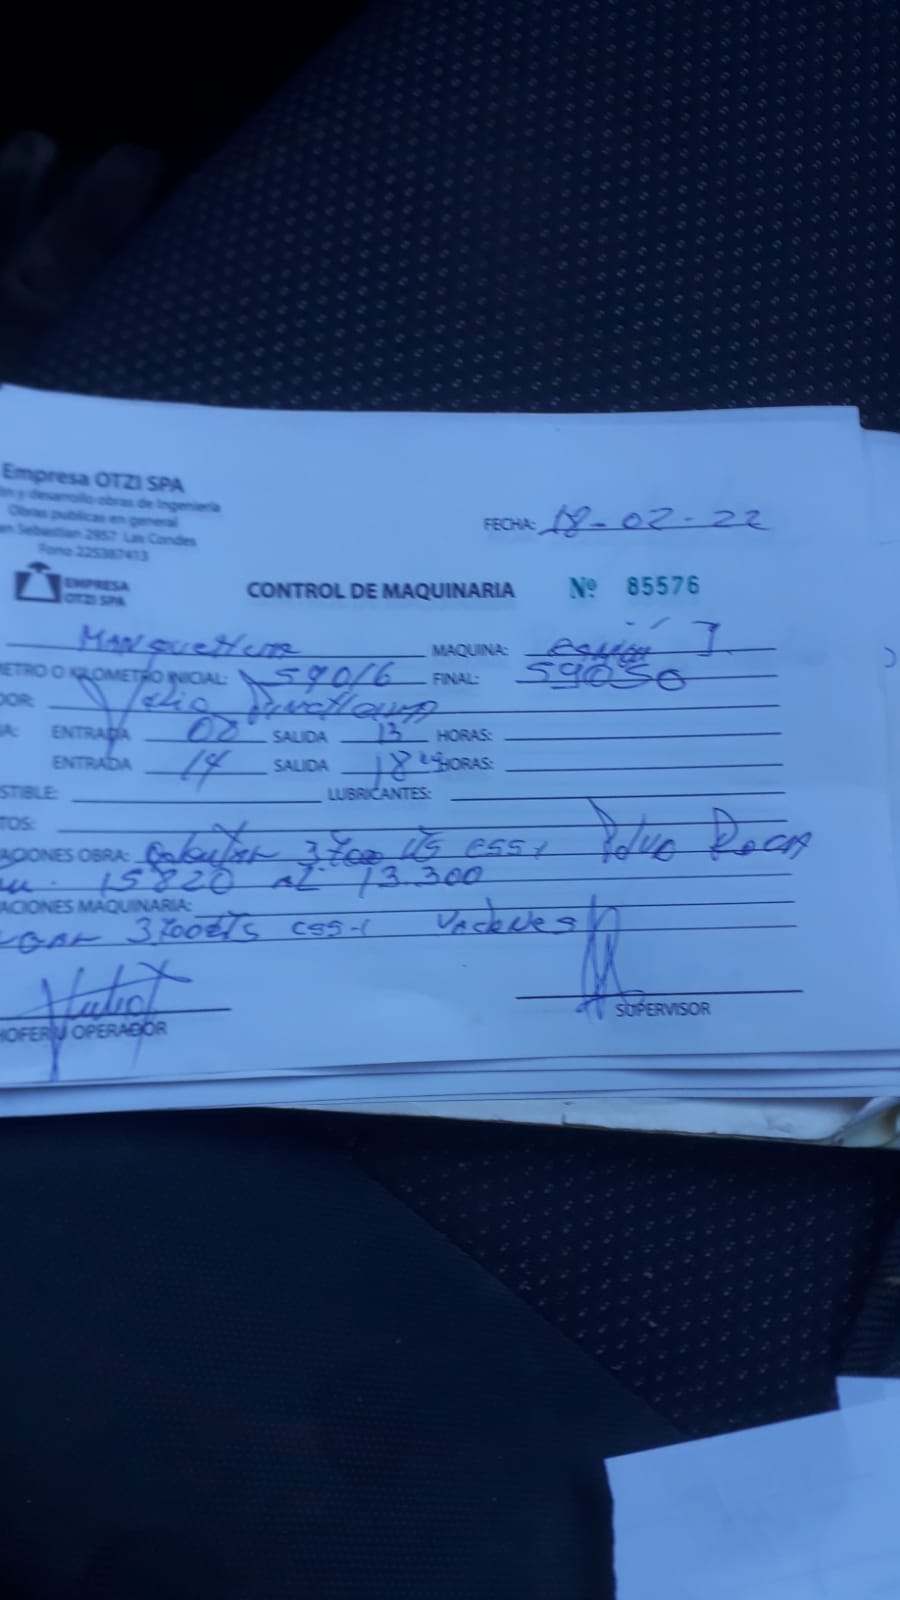 Empresa OTZI SPA
n y desarrollo obras de Ingeniería
Obras publicas en general
n Sebastian 2957 Las Condes
Fono 225387413
FECHA: 18-02-22
EMPRESA
OTZI SPA
CONTROL DE MAQUINARIA Nº 85576
MAQUINA:
METRO O KILOMETRO INICIAL: 59016 FINAL: 59050
DOR:
A: ENTRADA 08 SALIDA 13 HORAS:
ENTRADA 14 SALIDA 18 HORAS:
STIBLE: LUBRICANTES:
TOS:
ACIONES OBRA: 3700 LTS CSS-1 Polvo Roca
15820 AL 13.300
ACIONES MAQUINARIA:
3700 LTS CSS-1
HOFER U OPERADOR SUPERVISOR